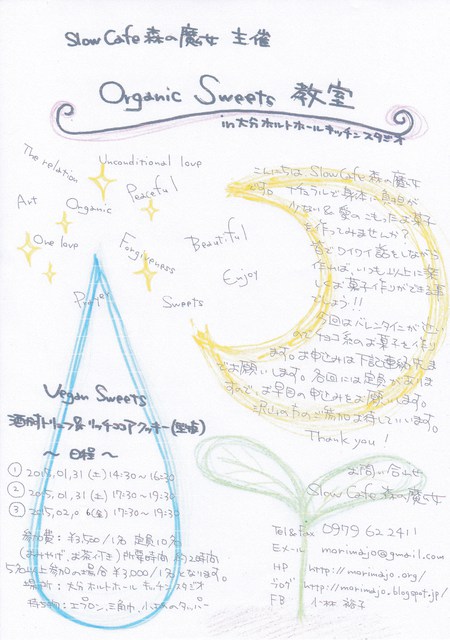 Slow Cafe 森の魔女 主催
Organic Sweets 教室
in 大分ホルトホールキッチンスタジオ
The relation
Unconditional love
Peaceful
Art
Organic
One love
Forgiveness
Beautiful
Enjoy
Prayer
Sweets
こんにちは Slow Cafe 森の魔女
です。ナチュラルで身体に負担が
少ない & 愛のこもったお菓子
を作ってみませんか?
皆でワイワイ話をしながら
作れば、いつも以上に楽
しくお菓子作りができる事
でしょう!!
今回はバレンタインが近い
のでチョコ系のお菓子を作り
ます。お申込みは下記連絡先ま
でお願いします。各回には定員がありま
すので、お早目の申し込みをお願いします。
沢山の方のご参加お待ちしています。
Thank you!
Vegan Sweets
酒粕トリュフ & リッチココアクッキー(豆腐)
~ 日程 ~
① 2015,01,31(土) 14:30~16:30
② 2015,01,31(土) 17:30~19:30
③ 2015,02,06(金) 17:30~19:30
参加費:¥3,500/1名 定員10名
(おみやげ、お茶付き) 所要時間 約2時間
5名以上参加の場合 ¥3,000/1名となります。
場所:大分ホルトホールキッチンスタジオ
持ち物:エプロン、三角巾、小さめのタッパー
お問い合わせ
Slow Cafe 森の魔女
Tel&Fax 0979 62 2411
Eメール morimajo@gmail.com
HP http://morimajo.org/
ブログ http://morimajo.blogspot.jp/
FB 小林 裕子